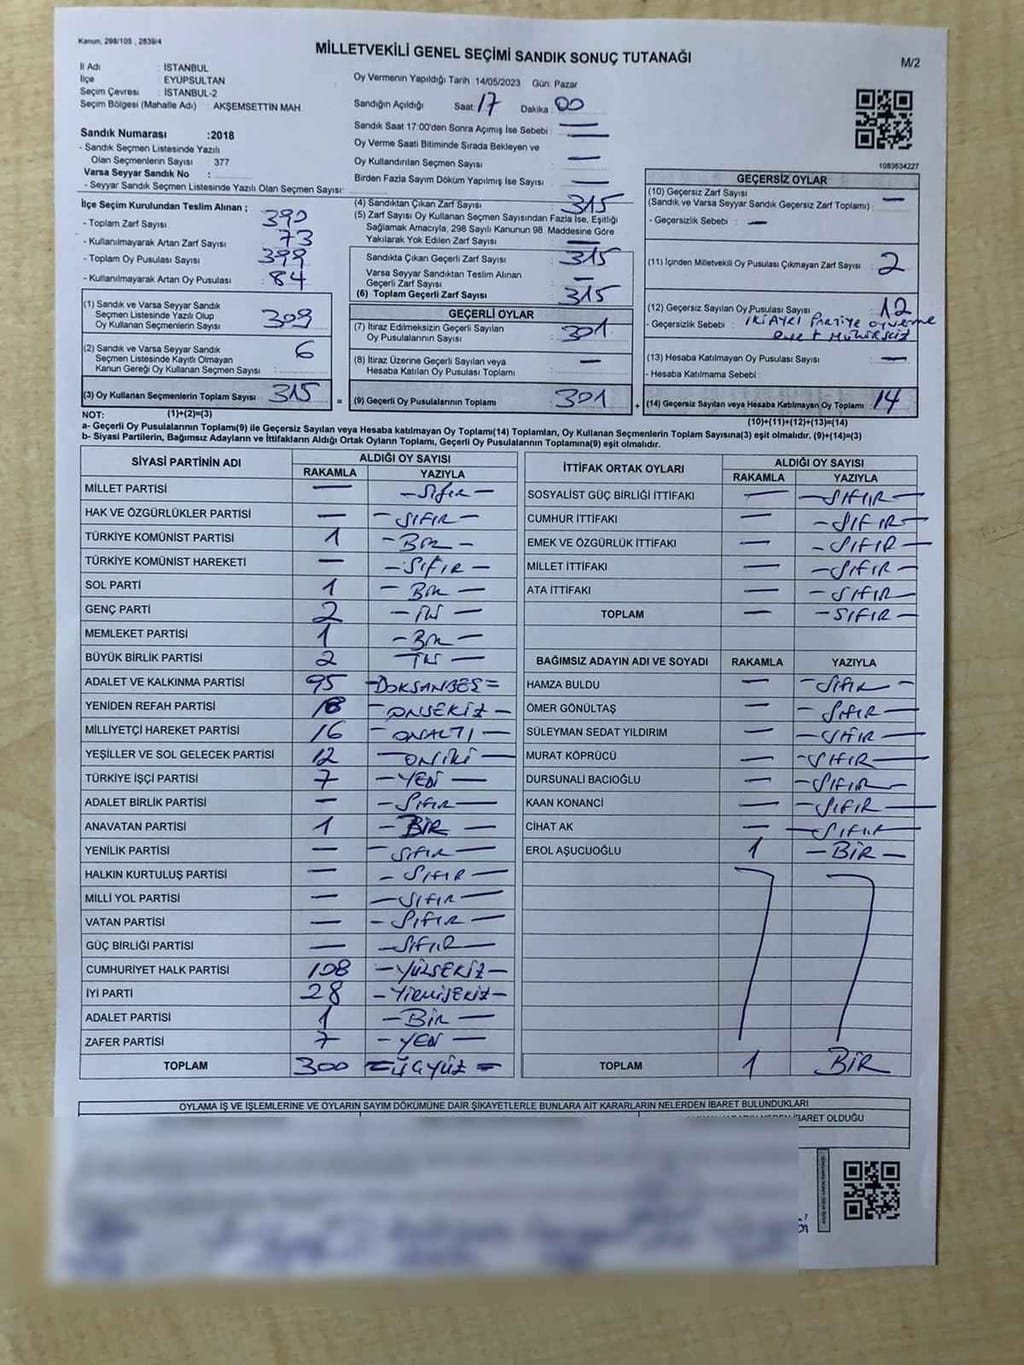 Kanun, 298/105 , 2839/4
MİLLETVEKİLİ GENEL SEÇİMİ SANDIK SONUÇ TUTANAĞI
M/2
İl Adı : İSTANBUL
İlçe : EYÜPSULTAN
Seçim Çevresi : İSTANBUL-2
Seçim Bölgesi (Mahalle Adı) : AKŞEMSETTİN MAH.
Sandık Numarası :2018
- Sandık Seçmen Listesinde Yazılı
Olan Seçmenlerin Sayısı 377
Varsa Seyyar Sandık No :
- Seyyar Sandık Seçmen Listesinde Yazılı Olan Seçmen Sayısı:
Oy Vermenin Yapıldığı Tarih :14/05/2023 Gün: Pazar
Sandığın Açıldığı Saat: 17 Dakika: 00
Sandık Saat 17:00'den Sonra Açımış İse Sebebi : —
Oy Verme Saati Bitiminde Sırada Bekleyen ve
Oy Kullandırılan Seçmen Sayısı : —
Birden Fazla Sayım Döküm Yapılmış İse Sayısı : —
1083634227
İlçe Seçim Kurulundan Teslim Alınan ;
- Toplam Zarf Sayısı : 390
- Kullanılmayarak Artan Zarf Sayısı : 73
- Toplam Oy Pusulası Sayısı : 399
- Kullanılmayarak Artan Oy Pusulası : 84
(1) Sandık ve Varsa Seyyar Sandık
Seçmen Listesinde Yazılı Olup
Oy Kullanan Seçmenlerin Sayısı : 309
(2) Sandık ve Varsa Seyyar Sandık
Seçmen Listesinde Kayıtlı Olmayan
Kanun Gereği Oy Kullanan Seçmen Sayısı : 6
(3) Oy Kullanan Seçmenlerin Toplam Sayısı : 315 =
(4) Sandıktan Çıkan Zarf Sayısı : 315
(5) Zarf Sayısı Oy Kullanan Seçmen Sayısından Fazla İse, Eşitliği
Sağlamak Amacıyla, 298 Sayılı Kanunun 98. Maddesine Göre
Yakılarak Yok Edilen Zarf Sayısı : —
Sandıkta Çıkan Geçerli Zarf Sayısı : 315
Varsa Seyyar Sandıktan Teslim Alınan
Geçerli Zarf Sayısı : —
(6) Toplam Geçerli Zarf Sayısı : 315
GEÇERLİ OYLAR
(7) İtiraz Edilmeksizin Geçerli Sayılan
Oy Pusulalarının Sayısı : 301
(8) İtiraz Üzerine Geçerli Sayılan veya
Hesaba Katılan Oy Pusulası Toplamı : —
(9) Geçerli Oy Pusulalarının Toplamı : 301 +
GEÇERSİZ OYLAR
(10) Geçersiz Zarf Sayısı
(Sandık ve Varsa Seyyar Sandık Geçersiz Zarf Toplamı) : —
- Geçersizlik Sebebi : —
(11) İçinden Milletvekili Oy Pusulası Çıkmayan Zarf Sayısı : 2
(12) Geçersiz Sayılan Oy Pusulası Sayısı : 12
- Geçersizlik Sebebi : İKİ AYRI PARTİYE OY VERME
(13) Hesaba Katılmayan Oy Pusulası Sayısı : —
- Hesaba Katılmama Sebebi :
(14) Geçersiz Sayılan veya Hesaba Katılmayan Oy Toplamı : 14
NOT: (1)+(2)=(3) (10)+(11)+(12)+(13)=(14)
a- Geçerli Oy Pusulalarının Toplamı(9) ile Geçersiz Sayılan veya Hesaba katılmayan Oy Toplamı(14) Toplamları, Oy Kullanan Seçmenlerin Toplam Sayısına(3) eşit olmalıdır. (9)+(14)=(3)
b- Siyasi Partilerin, Bağımsız Adayların ve İttifakların Aldığı Ortak Oyların Toplamı, Geçerli Oy Pusulalarının Toplamına(9) eşit olmalıdır.
SİYASİ PARTİNİN ADI ALDIĞI OY SAYISI
RAKAMLA YAZIYLA
MİLLET PARTİSİ — - Sıfır -
HAK VE ÖZGÜRLÜKLER PARTİSİ — - SIFIR -
TÜRKİYE KOMÜNİST PARTİSİ 1 - BİR -
TÜRKİYE KOMÜNİST HAREKETİ — - SIFIR -
SOL PARTİ 1 - BİR -
GENÇ PARTİ 2 - İKİ -
MEMLEKET PARTİSİ 1 - BİR -
BÜYÜK BİRLİK PARTİSİ 2 - İKİ -
ADALET VE KALKINMA PARTİSİ 95 - DOKSANBEŞ =
YENİDEN REFAH PARTİSİ 18 - ONSEKİZ -
MİLLİYETÇİ HAREKET PARTİSİ 16 - ONALTI -
YEŞİLLER VE SOL GELECEK PARTİSİ 12 - ONİKİ -
TÜRKİYE İŞÇİ PARTİSİ 7 - YEDİ -
ADALET BİRLİK PARTİSİ — - SIFIR -
ANAVATAN PARTİSİ 1 - BİR -
YENİLİK PARTİSİ — - SIFIR -
HALKIN KURTULUŞ PARTİSİ — - SIFIR -
MİLLİ YOL PARTİSİ — - SIFIR -
VATAN PARTİSİ — - SIFIR -
GÜÇ BİRLİĞİ PARTİSİ — - SIFIR -
CUMHURİYET HALK PARTİSİ 108 - YÜZSEKİZ -
İYİ PARTİ 28 - YİRMİSEKİZ -
ADALET PARTİSİ 1 - BİR -
ZAFER PARTİSİ 7 - YEDİ -
TOPLAM 300 = ÜÇYÜZ =
İTTİFAK ORTAK OYLARI ALDIĞI OY SAYISI
RAKAMLA YAZIYLA
SOSYALİST GÜÇ BİRLİĞİ İTTİFAKI — - SIFIR -
CUMHUR İTTİFAKI — - SIFIR -
EMEK VE ÖZGÜRLÜK İTTİFAKI — - SIFIR -
MİLLET İTTİFAKI — - SIFIR -
ATA İTTİFAKI — - SIFIR -
TOPLAM — - SIFIR -
BAĞIMSIZ ADAYIN ADI VE SOYADI RAKAMLA YAZIYLA
HAMZA BULDU — - SIFIR -
ÖMER GÖNÜLTAŞ — - SIFIR -
SÜLEYMAN SEDAT YILDIRIM — - SIFIR -
MURAT KÖPRÜCÜ — - SIFIR -
DURSUNALİ BACIOĞLU — - SIFIR -
KAAN KONANCİ — - SIFIR -
CİHAT AK — - SIFIR -
EROL AŞUCUOĞLU 1 - BİR -
TOPLAM 1 BİR
OYLAMA İŞ VE İŞLEMLERİNE VE OYLARIN SAYIM DÖKÜMÜNE DAİR ŞİKAYETLERLE BUNLARA AİT KARARLARIN NELERDEN İBARET BULUNDUKLARI
İBARET OLDUĞU